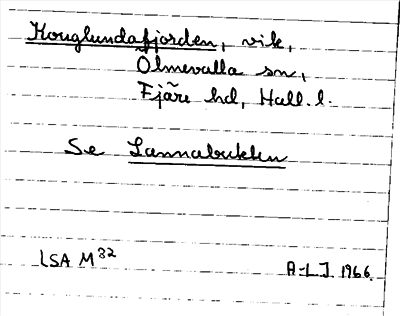 Kouglundafjorden, vik,
Ölmevalla sn,
Fjäre hd, Hall. l.
Se Lannabukten
LSA M 32
A-LJ 1966.